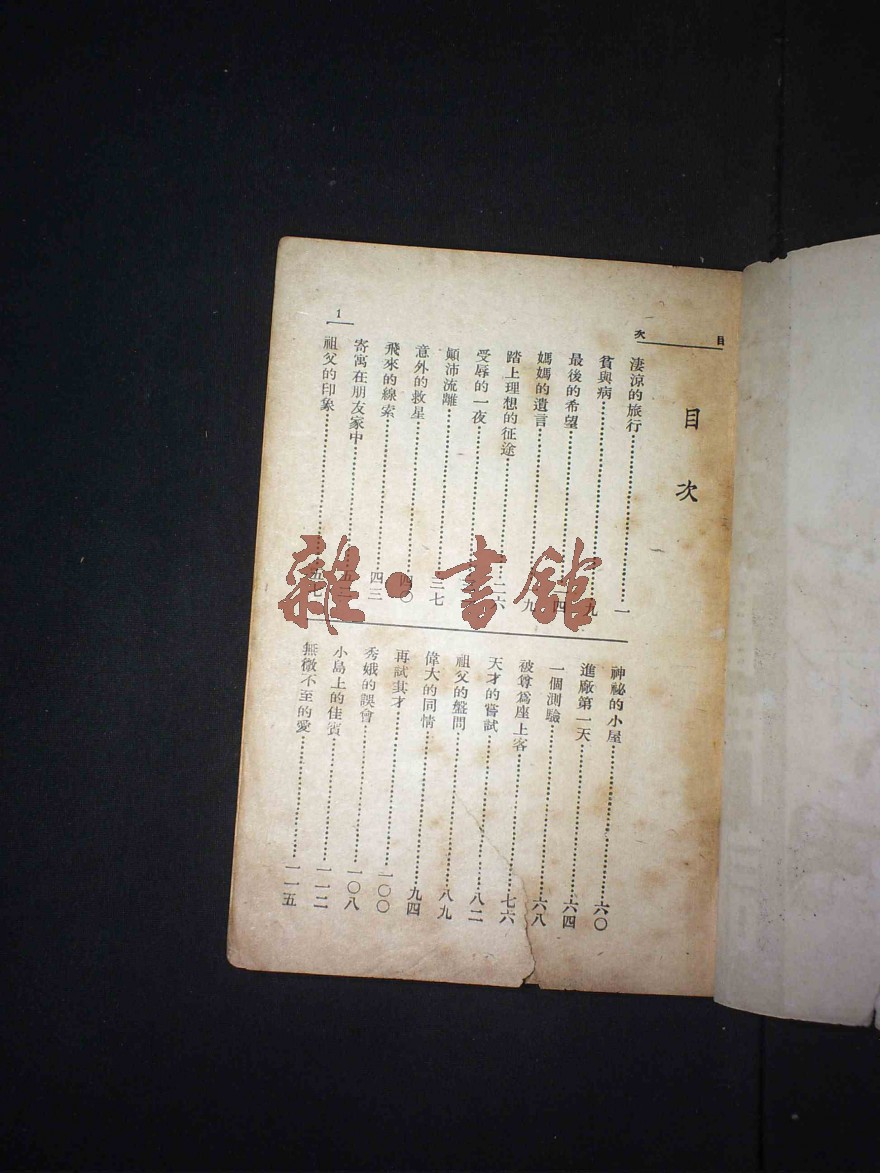 目次
目次
淒涼的旅行 一
貧與病 九
最後的希望 四
媽媽的遺言 九
踏上理想的征途 二六
受辱的一夜
顚沛流離 三七
意外的救星 四〇
飛來的線索 四三
寄寓在朋友家中 五二
祖父的印象 五七
1
神祕的小屋 六〇
進廠第一天 六四
一個測驗 六八
被尊爲座上客 七六
天才的嘗試 八二
祖父的盤問 八九
偉大的同情 九四
再試其才 一〇〇
秀娥的誤會 一〇八
小島上的佳賓 一一二
無微不至的愛 一一五
雜·書館